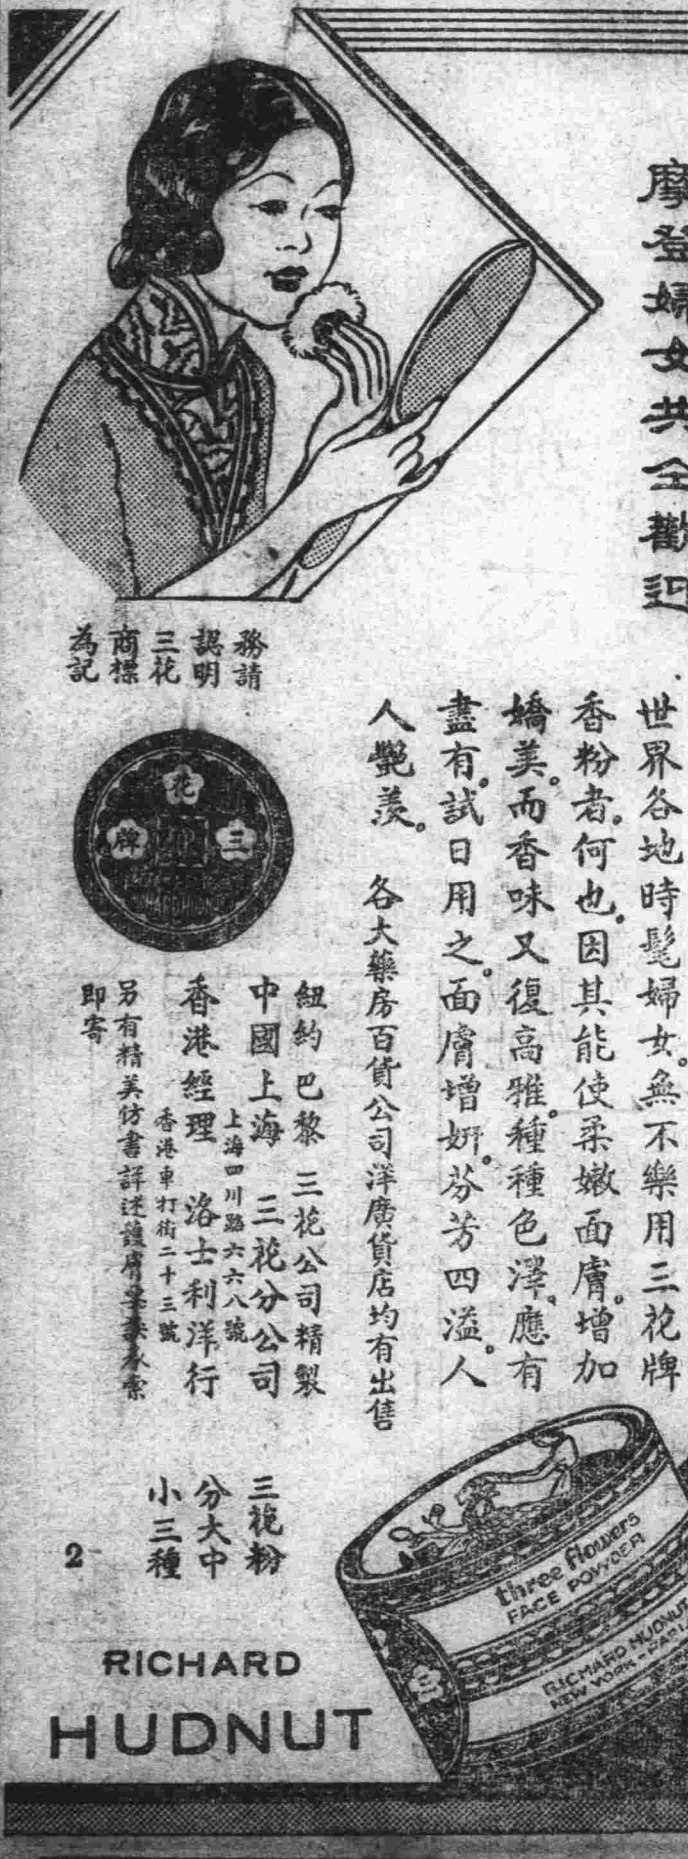 摩登婦女共仝歡迎
世界各地時髦婦女。無不樂用三花牌
香粉者。何也。因其能使柔嫩面膚。增加
嬌美。而香味又復高雅。種種色澤。應有
盡有。試日用之。面膚增妍。芬芳四溢。人
人艷羨。
各大藥房百貨公司洋廣貨店均有出售
務請
認明
三花
商標
為記
三
花
牌
紐約巴黎 三花公司精製
中國上海 三花分公司
上海四川路六六八號
香港經理 洛士利洋行
香港東打街二十三號
另有精美仿書詳述護膚 承索
即寄
三花粉
分大中
小三種
2
three flowers
FACE POWDER
RICHARD HUDNUT
NEW YORK - PARIS
RICHARD
HUDNUT